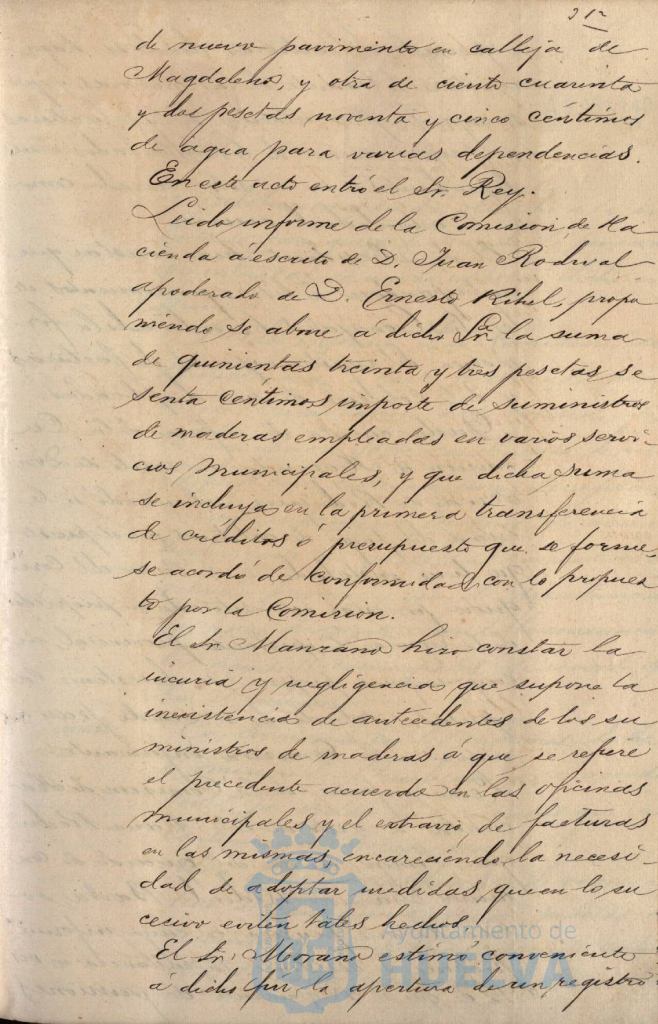 de nuevo pavimento en calleja de
Magdalena, y otra de ciento cuarenta
y dos pesetas noventa y cinco céntimos
de agua para varias dependencias.
En este acto entró el Sr. Rey.
Leido informe de la Comision de Ha
cienda á escrito de D. Juan Rodival
apoderado de D. Ernesto Rihel, propo
niendo se abone á dicho Sr. la suma
de quinientas treinta y tres pesetas se
senta céntimos importe de suministros
de maderas empleadas en varios servi-
cios Municipales, y que dicha suma
se incluya en la primera transferencia
de créditos ó presupuesto que se forme,
se acordó de conformidad con lo propues
to por la Comision.
El Sr. Manzano hizo constar la
incuria y negligencia que supone la
inexistencia de antecedentes de los su
ministros de maderas á que se refiere
el precedente acuerdo en las oficinas
municipales y el extravio de facturas
en las mismas, encareciendo la necesi-
dad de adoptar medidas que en lo su
cesivo eviten tales hechos.
El Sr. Morano estimó conveniente
á dicho fin la apertura de un registro
Ayuntamiento de
HUELVA